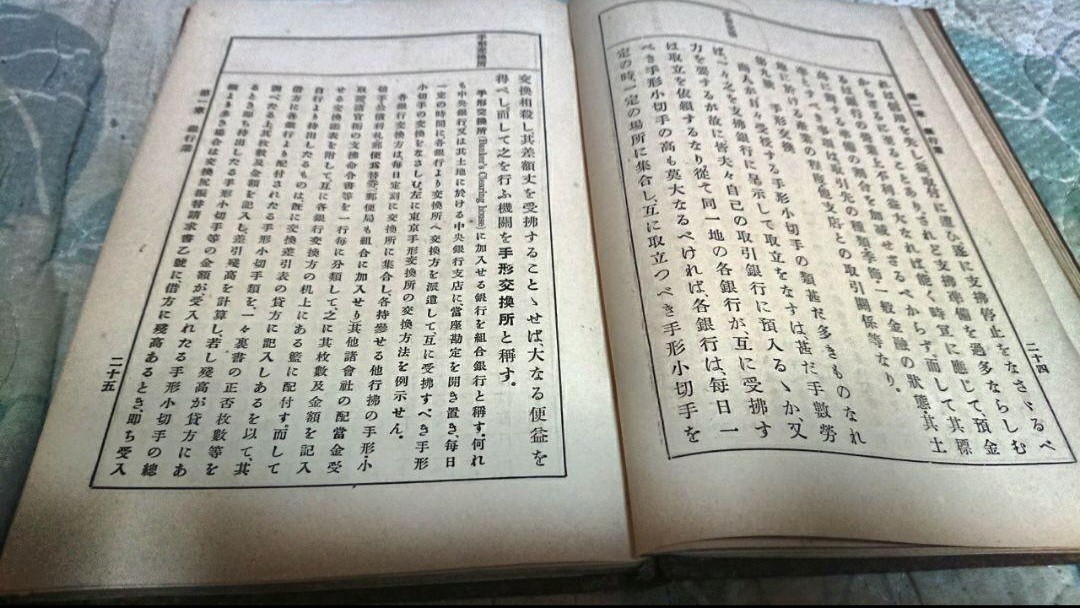 第一章 銀行論
二十四
れは信用を失し取付に遭ひ遂に支拂停止をなさゞるべ
からざるに至ることあり、されど支拂準備を過多ならしむ
るは銀行の營業上不利益大なれば能く時宜に應じて、預金
高に對する準備の割合を加減せざるべからず、而して其標
準とすべき事項は取引先の種類、季節、一般金融の狀態、其土
地に於ける産業の
支店との取引關係等なり。
第九節 手形交換
商人が日々受授する手形小切手の類甚だ多きものなれ
ば、一々之を支拂銀行に呈示して取立をなすは甚だ手數勞
力を要するが故に皆夫々自己の取引銀行に預入るゝか、又
は取立を依頼するなり、從て同一地の各銀行が、互に受拂す
べき手形小切手の高も莫大なるべければ、各銀行は、毎日一
定の時、一定の場所に集合し、互に取立つべき手形小切手を
手形交換所
交換相殺し、其差額丈を受拂することゝせば、大なる便益を
得べし、而して之を行ふ機關を手形交換所と稱す。
手形交換所(Banker's Clearing house)に加入せる銀行を組合銀行と稱す。何れ
も中央銀行又は其土地に於ける中央銀行支店に、當座勘定を開き置き、毎日
一定の時間に、各銀行より交換所へ交換方を派遣して、互に受拂すべき手形
小切手の交換をなさしむ、左に東京手形交換所の交換方法を例示せん。
各銀行交換方は毎日定刻に交換所に集合し、各持參せる他行拂の手形・小
切手公債利札郵便爲替券(郵便局も組合に加入せり)其他諸會社の配當金受
取證諸官衙の支拂命令書等を一行毎に分類して、之に其枚數及金額を記入
せる交換添表を附して、互に各銀行交換方の机上にある籃に配付す。而して
自行より持出したるものは、既に交換差引表の貸方に記入しあるを以て、其
借方に各銀行より配付されたる手形小切手類を、一々裏書の正否枚數等を
調べたる上其枚數及金額を記入し、差引殘高を計算し、若し殘高が貸方にあ
るとき即ち持出したる手形小切手等の金額が受入れたる手形小切手の總
額より多き場合は交換尻振替請求書乙號に、借方に殘高あるとき、即ち受入
第一章 銀行論
二十五